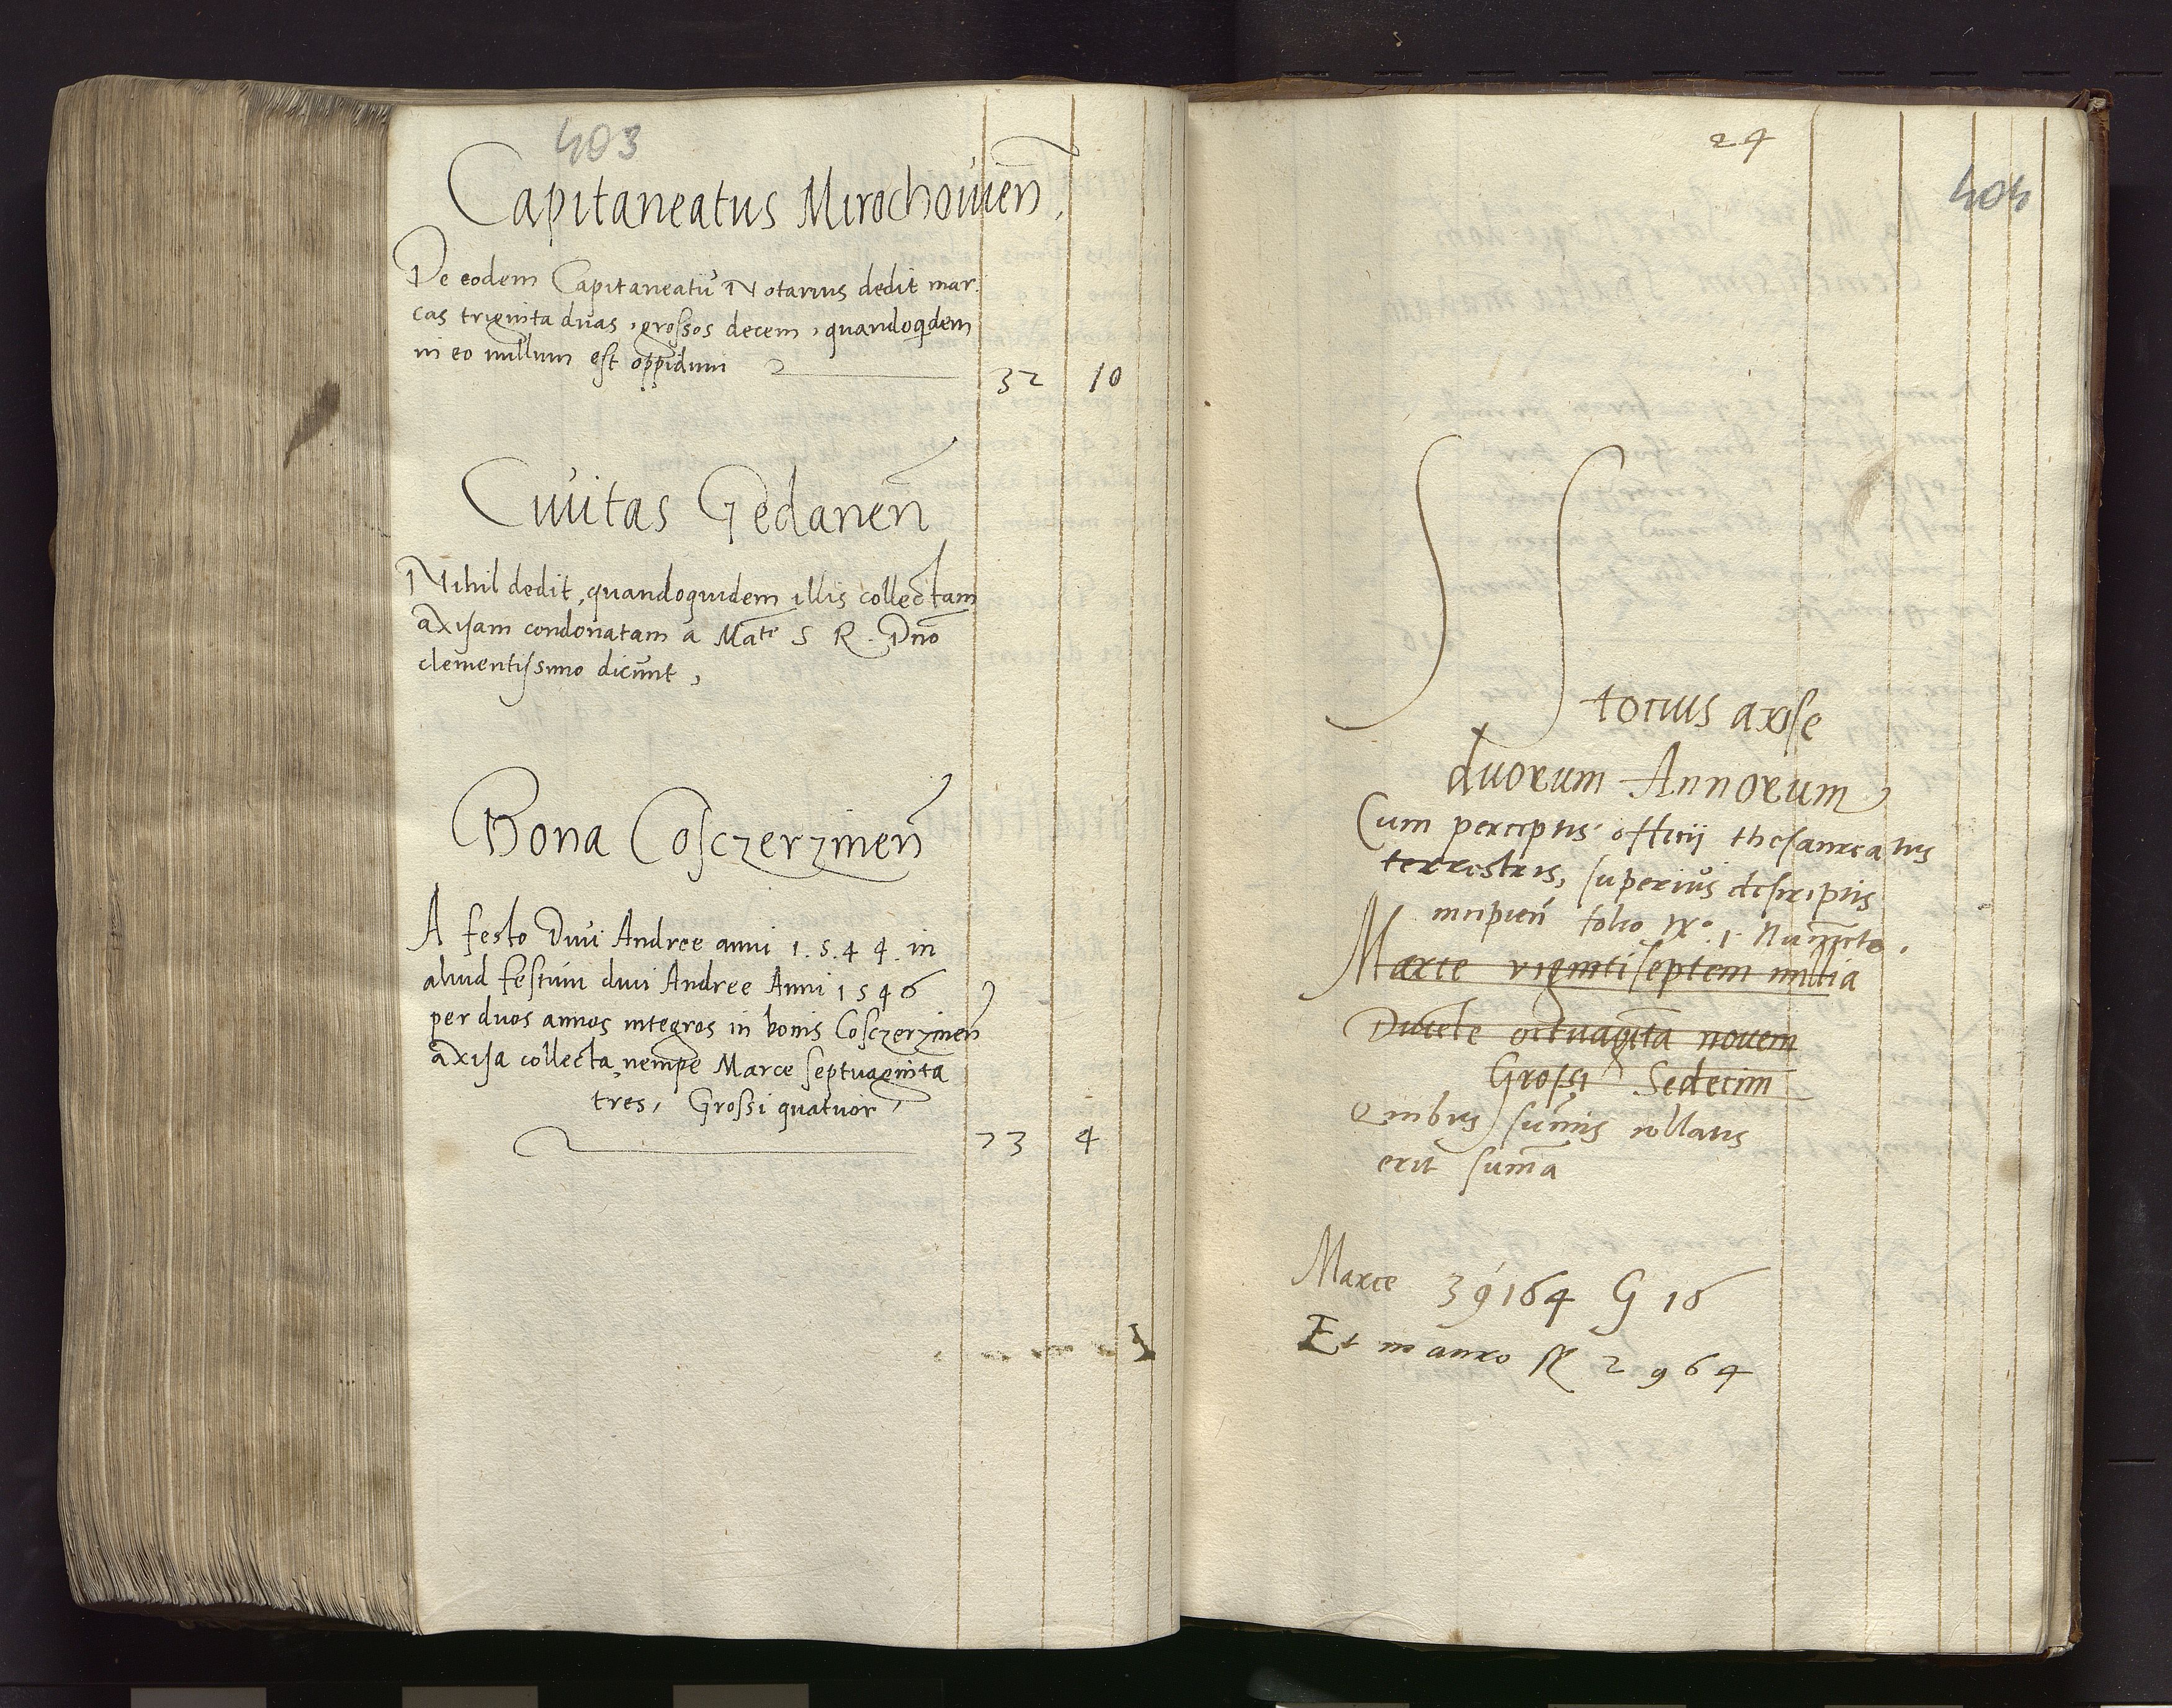 403
Capitaneatus Mirochouien̄.
De eodem Capitaneatu Notarius dedit mar.
cas triginta duas, grossos decem, quandoqdem
in eo nullum est oppidum
32 10
Ciuitas Gedanen̄
Nihil dedit, quandoquidem illis collectam
axisam condonatam a Mate S R. Dno
clementissimo dicunt,
Bona Cosczerzinen̄
A festo Diui Andree anni 1.5.44. in
aliud festum diui Andree Anni 1546
per duos annos integros in bonis Cosczerzinen̄
axisa collecta, nempe Marce septuaginta
tres, Grossi quatuor,
73 4
24
404
SS
totius axise
duorum Annorum
Cum perceptis officij thesaureatus
terrestris, superius descriptis
incipien̄ folio
Marce vigintiseptem millia
Ducete octuagīta nouem
Grossi Sedecim
Quibus sum̄is collatis
erit sum̄a
Marce 39164 G 16
Et in auro fl 2964